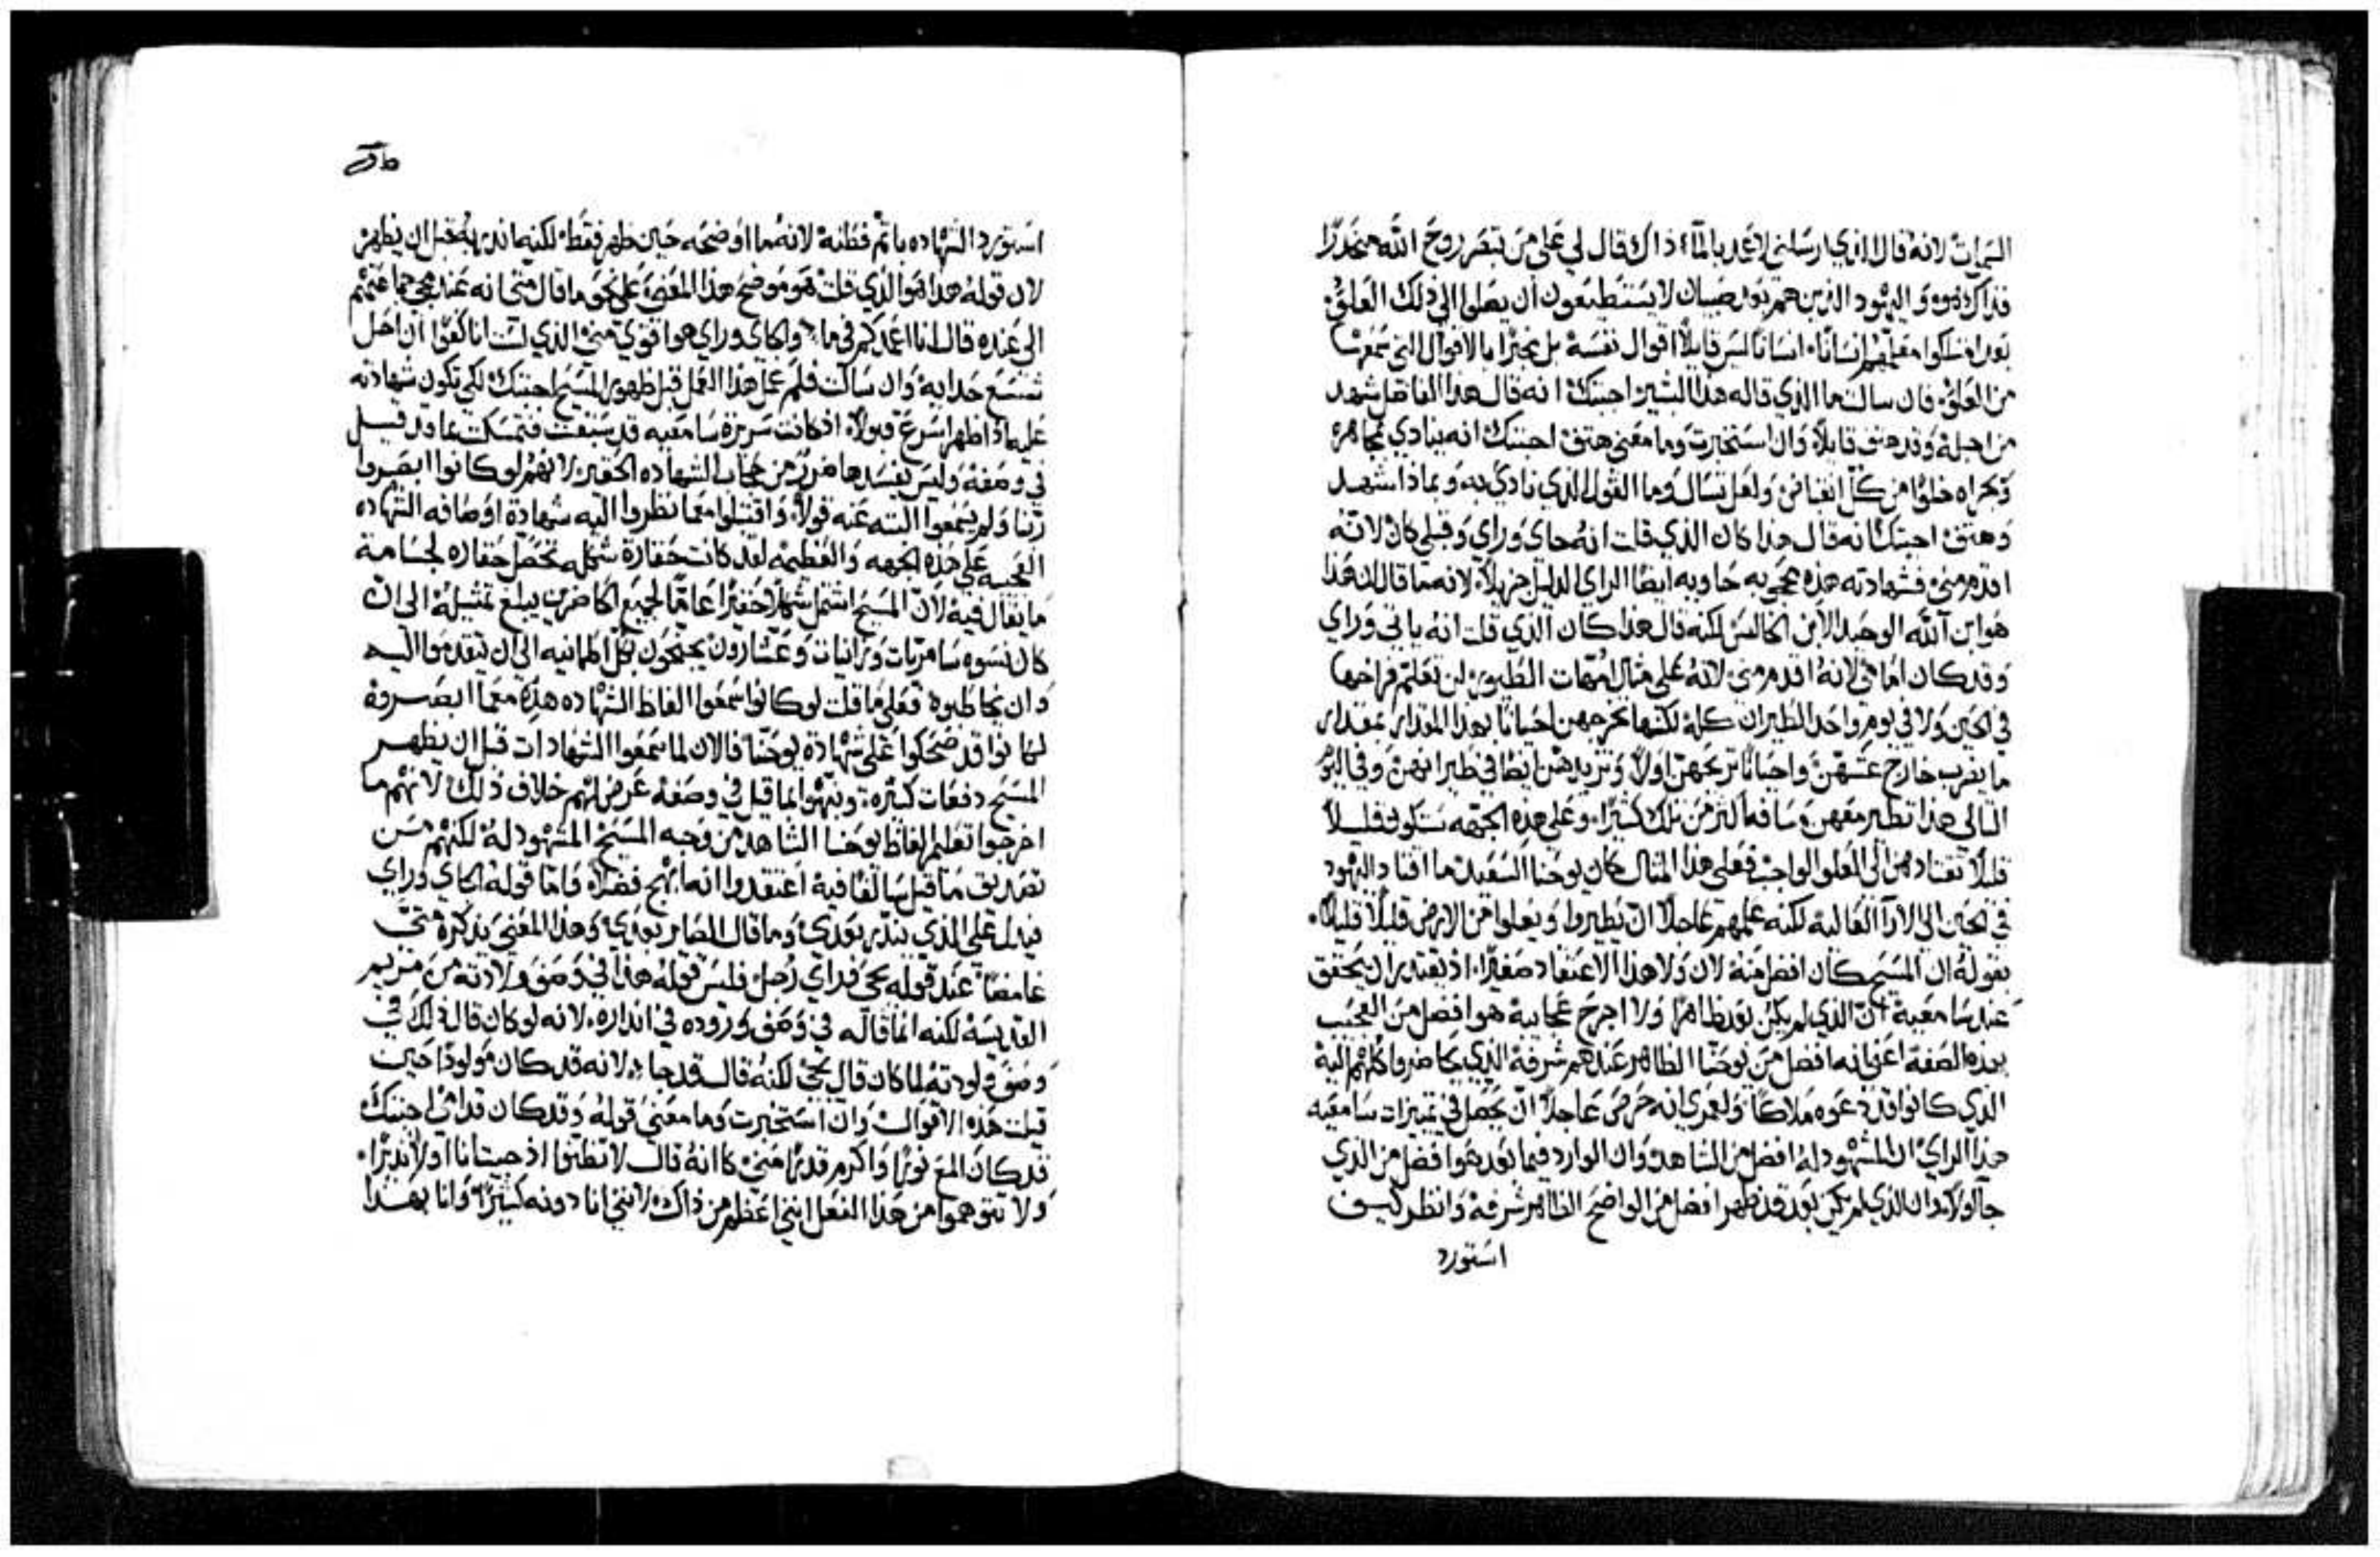 السموات لانه قال الذي ارسلني لاعمد بالماء ذاك قال لي على من تبصر روح الله منحدرًا
فذاك هو واليهود الذين هم بعد صبيان لا يستطيعون ان يصلوا الى ذلك العلو
بعد امتلكوا معلمهم انسانًا انسانا ليس قايلًا اقوال نفسه بل مخبرًا بالاقوال التي سمعها
من العلو فان سالت ما الذي قاله هذا البشير اجبتك انه قال هذا الفاضل شهد
من اجله وقد هتف قايلًا وان استخبرت وما معنى هتف اجبتك انه ينادي مجاهره
وبجراه خلوًا من كل انقباض ولعل تسال وما القول الذي نادى به وبماذا شهد
وهتف اجبتك انه قال هذا كان الذي قلت انه جاي وراي وقبلي كان لانه
اقدم مني فشهادته هذه محجبه حاويه ايضا الراي الذليل جزيلًا لانه ما قال ان هذا
هو ابن الله الوحيد الابن الخالص لكنه قال هذا كان الذي قلت انه ياتي وراي
وقد كان امامي لانه اقدم مني لانه على مثال امهات الطيور لن تعلم فراخها
في الحين ولا في يوم واحد الطيران كله لكنها تخرجهن احيانًا بهذا المقدار بمقدار
ما يقرب خارج عشهن واحيانًا تريحهن اولًا وتزيدهن ايضًا في طيرانهن وفي اليوم
التالي هذا تطير معهن مسافه اكثر من تلك كثيرًا وعلى هذه الجهه بسكون قليلا
قليلا تقتادهن الى العلو الواجب فعلى هذا المثال كان يوحنا السعيد ما اقتاد اليهود
في الحين الى الارآ العاليه لكنه علمهم عاجلًا ان يطيروا ويعلوا من الارض قليلًا قليلًا
بقوله ان المسيح كان افضل منه لان ولا هذا الاعتقاد صغيرًا اذ يقتدر ان يحقق
عند سامعيه ان الذي لم يكن بعد ظاهرًا ولا اجرح عجايبه هو افضل من العجيب
بهذه الصفة اعني انه افضل من يوحنا الظاهر عندهم شرفه الذي حاضروا كلهم اليه
الذي كانوا قد دعوه ملاكًا ولعمري انه حرص عاجلًا ان يحصل في تمييزات سامعيه
هذا الراي ان المشهود له افضل من الشاهد وان الوارد فيما بعد هو افضل من الذي
جآ اولًا وان الذي لم يكن بعد قد ظهر افضل من الواضح الظاهر شرفه وانظر كيف
استورد
استورد الشهاده باتم فطنه لانه ما اوضحه حين ظهر فقط لكنه انذر به قبل ان يظهر
لان قوله هذا هو الذي قلت هو موضح هذا المعنى على نحو ما قال متى انه عند مجي جماعتهم
الى عنده قال انا اعمدكم في ماء والجاي وراي هو اقوى مني الذي لست انا كفوًا ان احل
شسع حذايه وان سالت فلم عمل هذا العمل قبل ظهور المسيح اجبتك لكي تكون شهادته
عليه اذا ظهر اسرع قبولًا اذ كانت سريرة سامعيه قد سبقت فتمسكت بما قد قيل
في وصفه وليس يفسدها ضرر من حجاب الشهاده الحقير لانهم لو كانوا ابصروا
ربنا ولم يسمعوا البته عنه قولًا واقتبلوا معما نظروا اليه شهادة اوصافه الشهاده
العجيبه على هذه الجهه والعظيمه لقد كانت حقارة شكله تحصل حقاره لجسامة
ما يقال فيه لان المسيح اشتمل شكلًا حقيرًا عاميًا لجميع الحاضرين يبلغ تمثيله الى ان
كان نسوه سامريات وزانيات وعشارون يجنحون بكل طمانيه الى ان يتقدموا اليه
وان يخاطبوه فعلى ما قلت لو كانوا سمعوا الفاظ الشهاده هذه معما ابصروه
لكانوا قد ضحكوا على شهادة يوحنا فالان لما سمعوا الشهادات قبل ان يظهر
المسيح دفعات كثيره ونهوا بما قيل في وصفه عرض لهم خلاف ذلك لانهم ما
اخرجوا تعليم الفاظ يوحنا الشاهد من وجه المسيح المشهود له لكنهم من
تصديق ما قيل سالفًا فيه اعتقدوا انه ابهج فضلًا واما قوله الجاي وراي
فيدل على الذي ينذر بعدي وما قال الصاير بعدي وهذا المعنى يذكره متى
غامضًا عند قوله يجي وراي رجل فليس قوله هذا في وصف ولادته من مريم
القديسة لكنه انما قاله في وصف وروده في انذاره لانه لو كان قال ذلك في
وصف ولودته لما كان قال يجي لكنه قال قد جاء لانه قد كان مولودًا حين
قيلت هذه الاقوال وان استخبرت وما معنى قوله وقد كان قدامي اجبتك
قد كان المع نورًا واكرم قدرًا مني كانه قال لا تظنوا اذ جيت انا اولًا نذيرًا
ولا تتوهموا من هذا الفعل انني اعظم من ذاك لانني انا دونه كثيرًا وانا بهذا